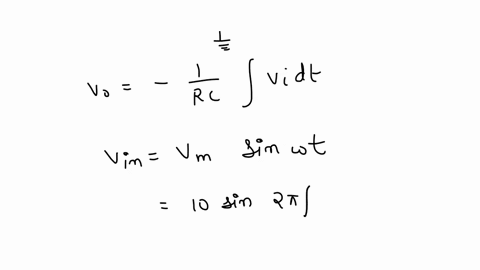 1/
V₀ = - 1/RC ∫ Vi dt
Vin = Vm sin ωt
= 10 sin 2π∫